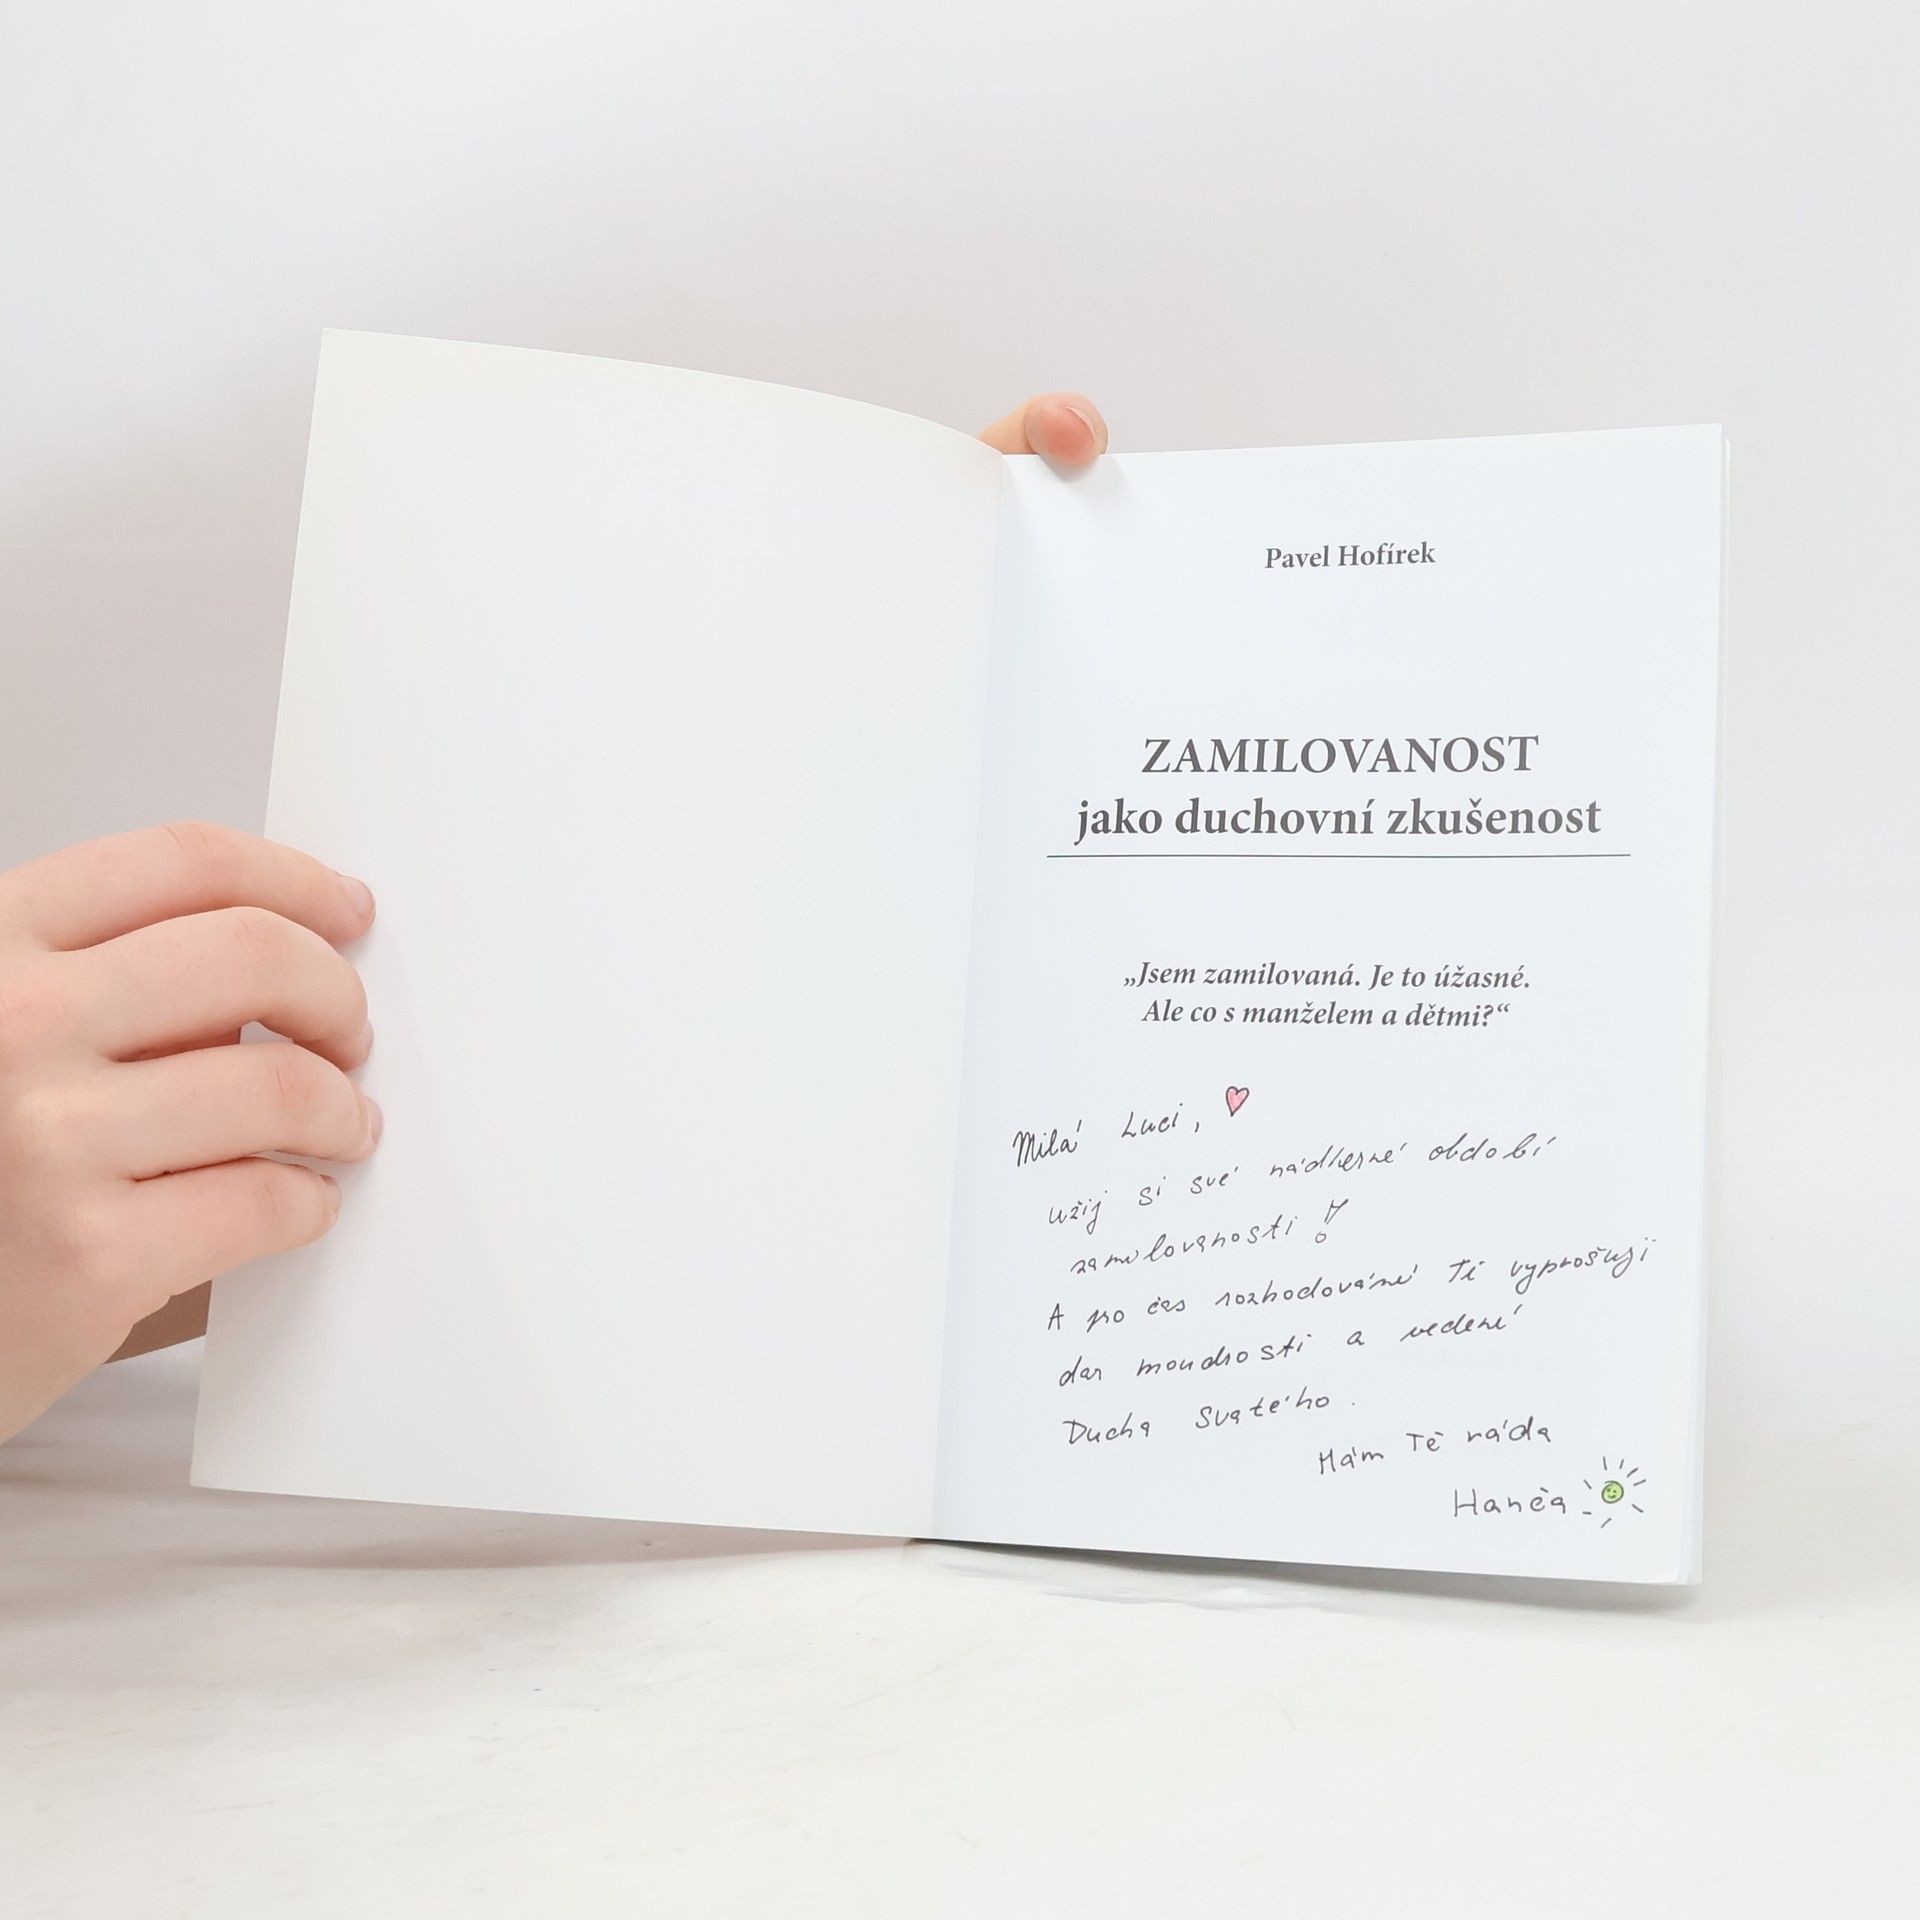 Pavel Hofírek
ZAMILOVANOST
jako duchovní zkušenost
„Jsem zamilovaná. Je to úžasné.
Ale co s manželem a dětmi?“
Milá Luci,
užij si své nádherné období
zamilovanosti!
A pro čas rozhodování Ti vyprošuji
dar moudrosti a vedení
Ducha Svatého.
Mám Tě ráda
Hanča